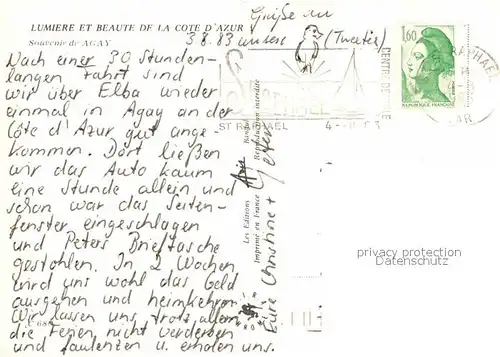 LUMIERE ET BEAUTE DE LA COTE D'AZUR
Souvenir de AGAY
Grüße an
3.8.83 unsere (Tweetie)
Nach einer 30 Stunden-
langen Fahrt sind
wir über Elba wieder
einmal in Agay an der
Côte d'Azur gut ange-
kommen. Dort ließen
wir das Auto kaum
eine Stunde allein und
schon war das Seiten-
fenster eingeschlagen
und Peters Brieftasche
gestohlen. In 2 Wochen
wird uns wohl das Geld
ausgehen und heimkehren.
Wir lassen uns trotz allem
die Ferien nicht verderben
und faulenzen u. erholen uns.
Eure Christine + Peter
Les Editions
Imprimé en France
Reproduction interdite
1,60
REPUBLIQUE FRANÇAISE
ST RAPHAEL
RAPHAEL
VAR
privacy protection
Datenschutz